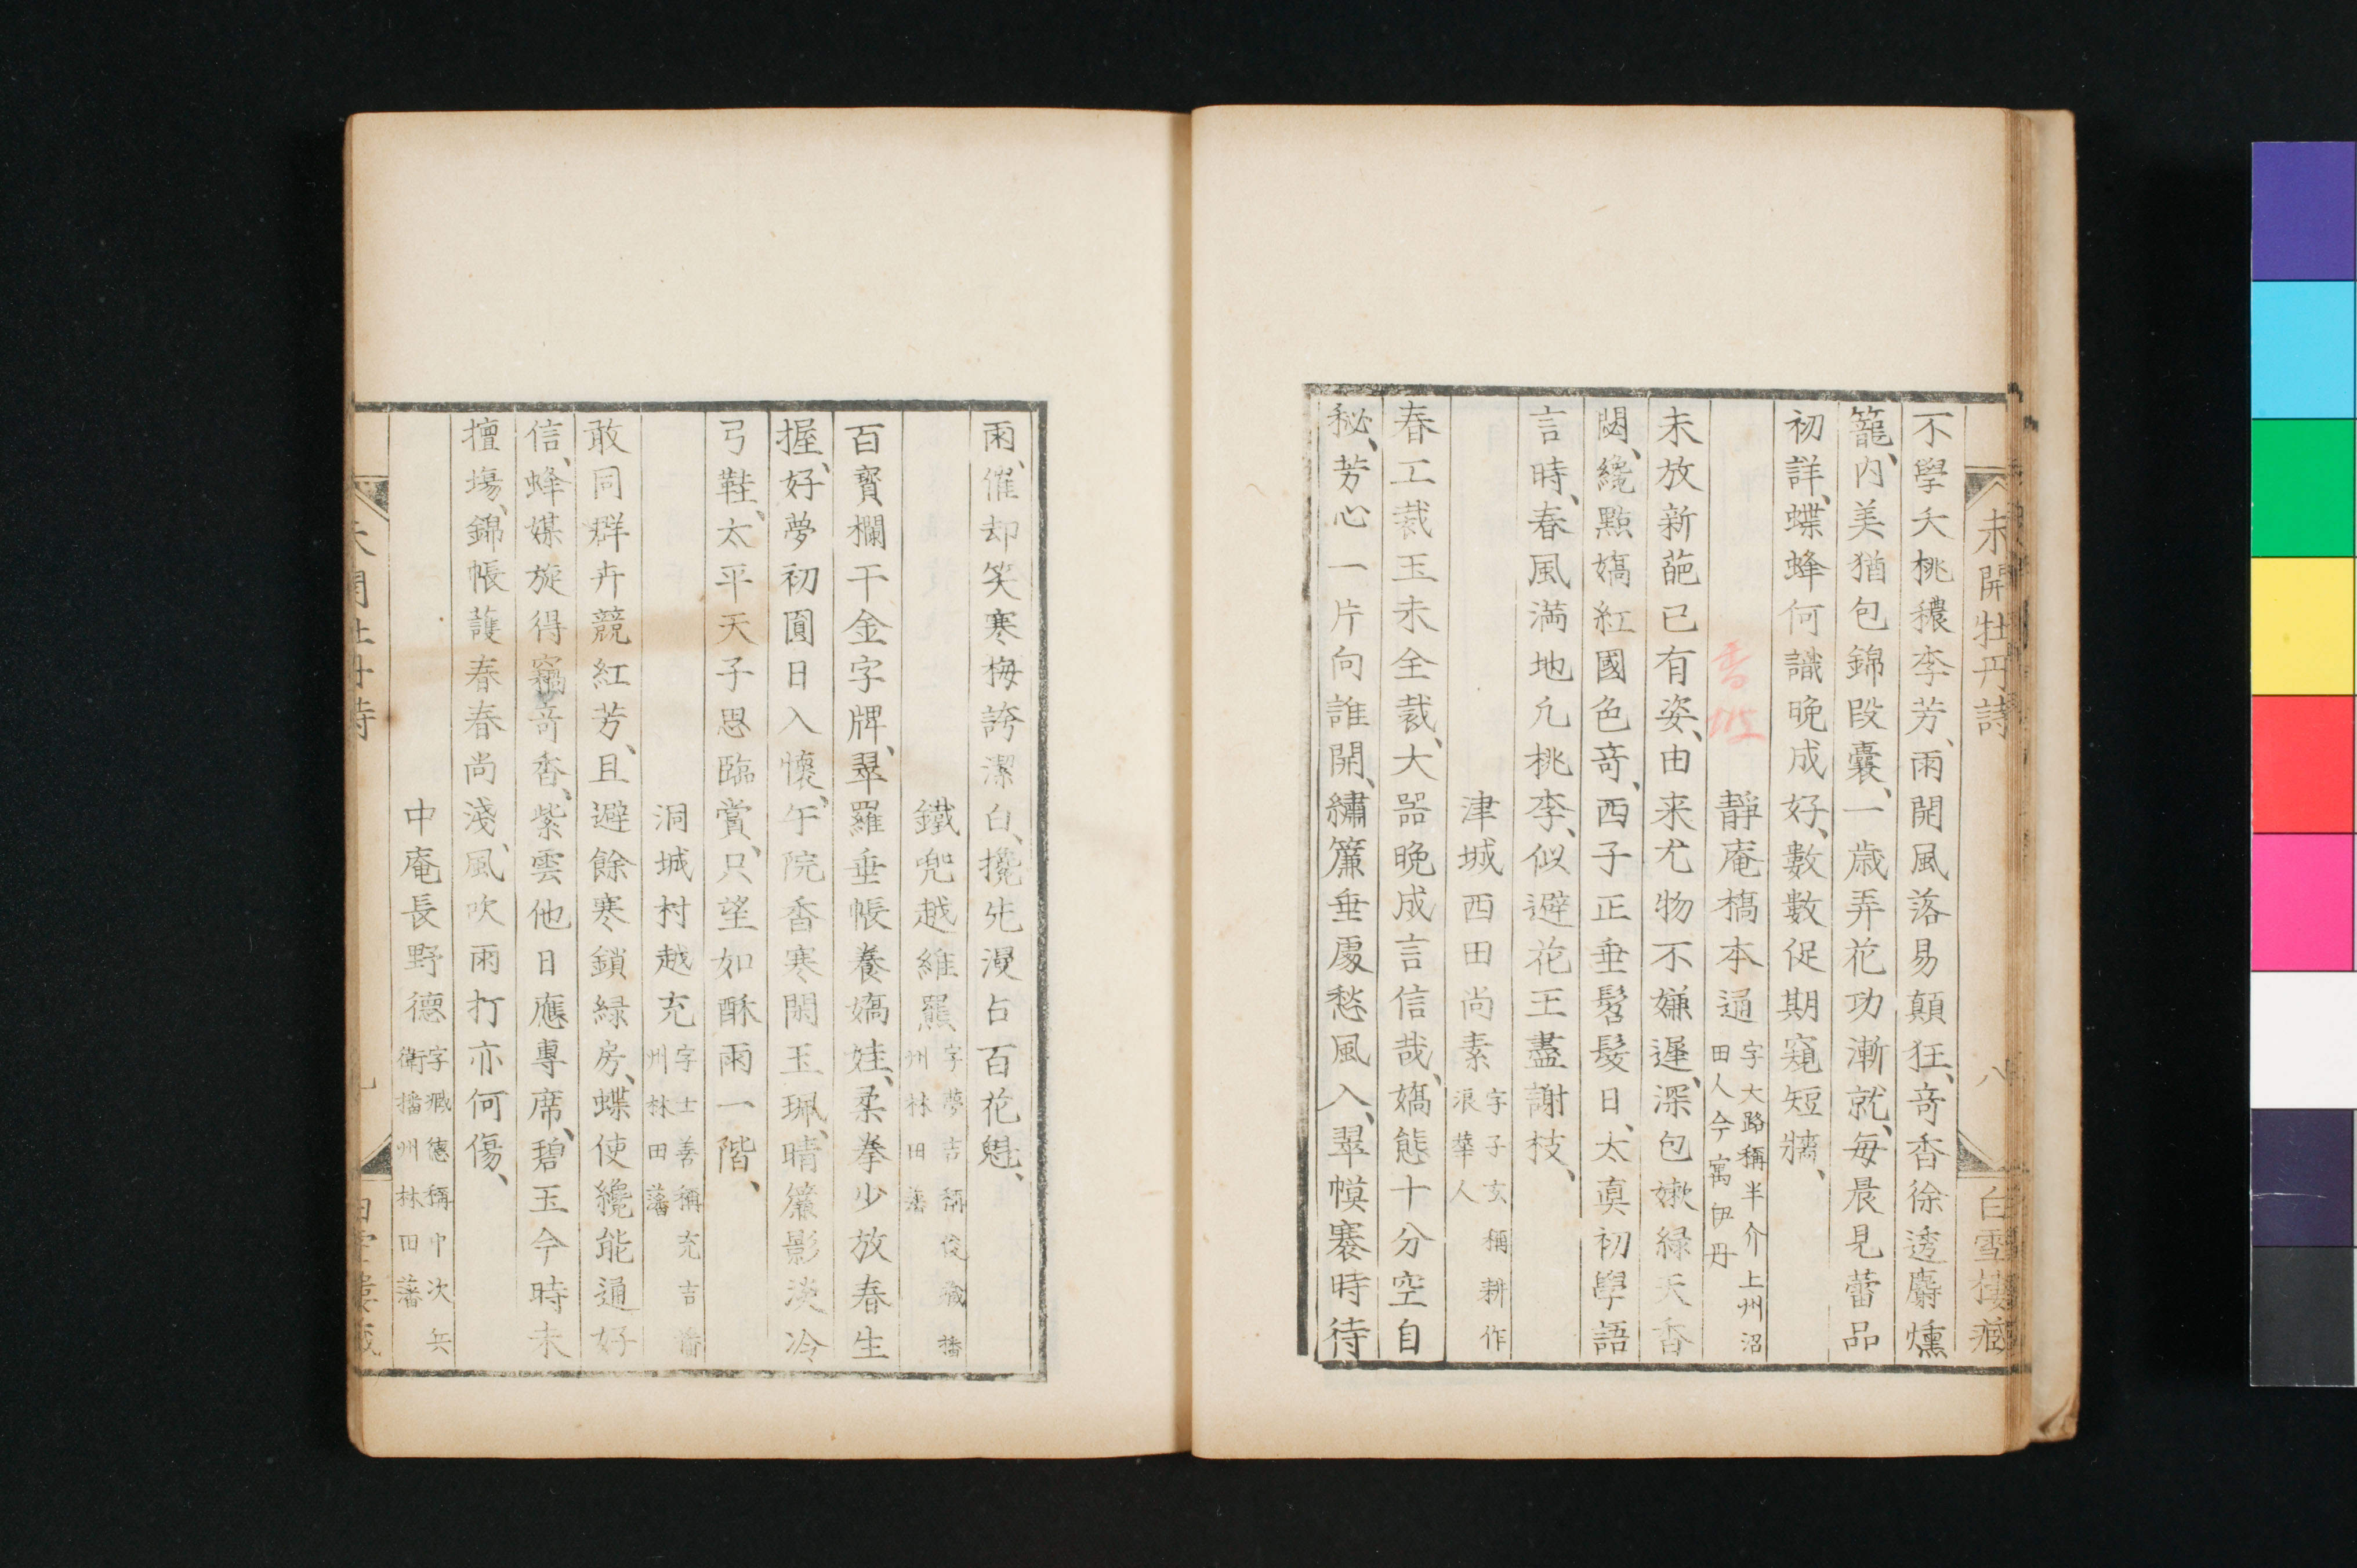 未開牡丹詩
八
白雪樓藏
不學夭桃穠李芳、雨開風落易顛狂、奇香徐透麝燻
籠、内美猶包錦段囊、一歲弄花功漸就、每晨見蕾品
初詳、蝶蜂何識晩成好、數數促期窺短牆、
香坡
靜庵橋本通
字大路稱半介上州沼
田人今寓伊丹
未放新葩已有姿、由来尤物不嫌遲、深包嫩緑天香
閟、纔點嬌紅國色奇、西子正垂髫髮日、太眞初學語
言時、春風滿地凢桃李、似避花王盡謝枝、
津城西田尚素
字子玄稱耕作
浪華人
春工裁玉未全裁、大器晩成言信哉、嬌態十分空自
秘、芳心一片向誰開、繡簾垂處愁風入、翠幙褰時待
雨、催却笑寒梅誇潔白、攙先漫占百花魁、
鐵兜越維羆
字夢吉稱俊藏播
州林田藩
百寳欄干金字牌、翠羅垂帳養嬌娃、柔拳少放春生
握、好夢初圓日入懷、午院香寒閑玉珮、晴簾影淡冷
弓鞋、太平天子思臨賞、只望如酥雨一階、
洞城村越充
字士善稱充吉播
州林田藩
敢同群卉競紅芳、且避餘寒鎖緑房、蝶使纔能通好
信、蜂媒旋得竊奇香、紫雲他日應專席、碧玉今時未
擅塲、錦帳護春春尚淺、風吹雨打亦何傷、
中庵長野德
字臧德稱中次兵
衛播州林田藩
未開牡丹詩
白雪樓藏